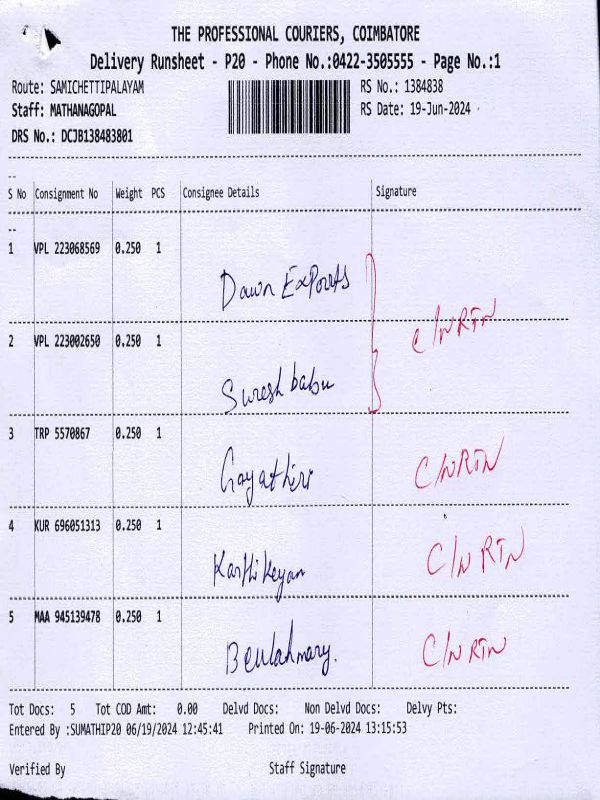 THE PROFESSIONAL COURIERS, COIMBATORE
Delivery Runsheet - P20 - Phone No.:0422-3505555 - Page No.:1
Route: SAMICHETTIPALAYAM RS No.: 1384838
Staff: MATHANAGOPAL RS Date: 19-Jun-2024
DRS No.: DCJB138483801
S No Consignment No Weight PCS Consignee Details Signature
1 VPL 223068569 0.250 1
Dawn Exports
C/NRTN
2 VPL 223002650 0.250 1
Suresh babu
3 TRP 5570867 0.250 1
Gayathiri C/NRTN
4 KUR 696051313 0.250 1
Karthikeyan C/N RTN
5 MAA 945139478 0.250 1
Beulahmary. C/N RTN
Tot Docs: 5 Tot COD Amt: 0.00 Delvd Docs: Non Delvd Docs: Delvy Pts:
Entered By :SUMATHIP20 06/19/2024 12:45:41 Printed On: 19-06-2024 13:15:53
Verified By Staff Signature